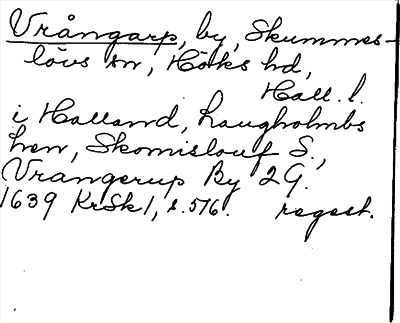 Vrångarp, by, Skummes-
lövs sn, Höks hd,
Hall. l.
i Halland, Laugholmbs
hen, Skomislouf S.,
Vrangerup By 2 G.
1639 KrSk 1, s. 516. regest.